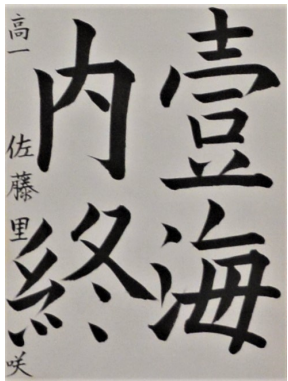 壹海
内終
高一 佐藤里咲